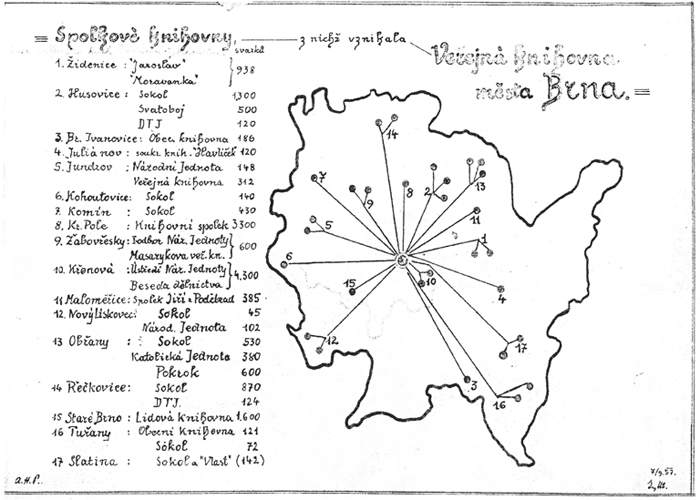 = Spolkové knihovny, z nichž vznikala
Veřejná knihovna
města Brna. =
svazků
1. Židenice : "Jaroslav"
"Moravanka" } 938
2. Husovice : Sokol 1,300
Svatoboj 500
DTJ 120
3. Br. Ivanovice : Obec. knihovna 186
4. Juliánov : soukr. knih. Havlíček 120
5. Jundrov : Národní Jednota 148
Veřejná knihovna 312
6. Kohoutovice : Sokol 140
7. Komín : Sokol 430
8. Kr. Pole : Knihovní spolek 3300
9. Žabovřesky : Todbor Nár. Jednoty
Masarykova veř. kn. } 600
10. Křenová : Ústřední Nár. Jednoty
Beseda dělnictva } 4,300
11 Maloměřice : Spolek Jiří z Poděbrad 385
12. Nový Lískovec : Sokol 45
Národ. Jednota 102
13 Obřany : Sokol 530
Katolická Jednota 380
Pokrok 600
14 Řečkovice : Sokol 870
DTJ. 124
15 Staré Brno : Lidová knihovna 1.600
16 Tuřany : Obecní knihovna 121
Sokol 72
17 Slatina : Sokol a "Vlast" (142)
14
7
9
8
2
13
5
11
1
6
10
15
4
12
17
3
16
a.H.P..